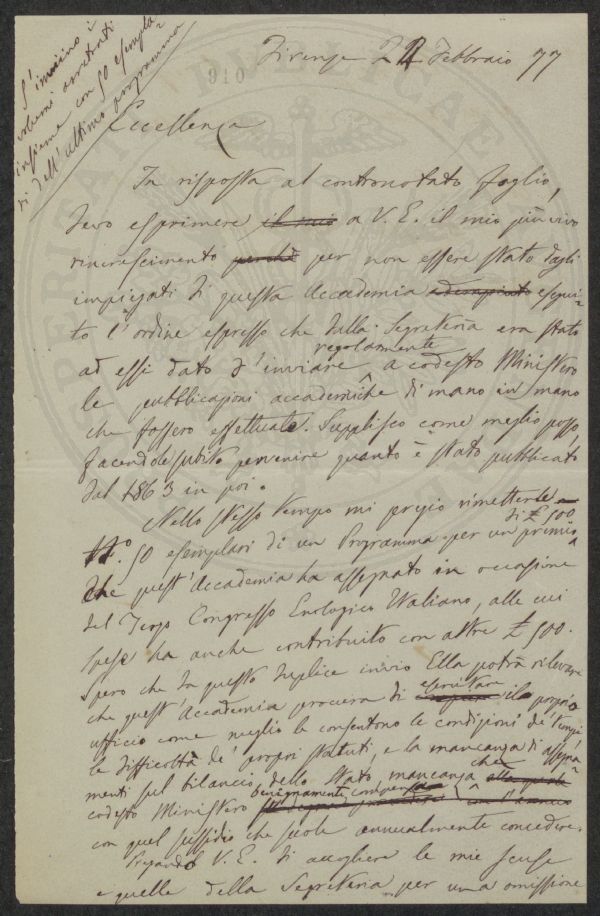 S'inviino i
volumi arretrati
insieme con 50 esempla-
ri dell'ultimo programma
Firenze 22 Febbraio 77
910
Eccellenza
In risposta al controнotato foglio,
devo esprimere il mio a V. E. il mio più vivo
rincrescimento perchè per non essere stato dagli
impiegati di questa Accademia adempiuto esegui-
to l'ordine espresso che dalla Segreteria era stato
ad essi dato d'inviare regolarmente a codesto Ministero
le pubblicazioni accademiche di mano in mano
che fossero effettuate. Supplisco come meglio posso,
facendole subito pervenire quanto è stato pubblicato
dal 1863 in poi.
Nello stesso tempo mi pregio rimetterle
N.º 50 esemplari di un Programma per un premio di £ 500
che quest'Accademia ha assegnato in occasione
del Terzo Congresso Enologico Italiano, alle cui
spese ha anche contribuito con altre £ 500.
Spero che da questo duplice invio Ella potrà rilevare
che quest'Accademia procura di esercitare il proprio
ufficio come meglio le consentono le condizioni de' tempi,
le difficoltà de' propri statuti, e la mancanza di assegna-
menti sul bilancio dello Stato, mancanza che
codesto Ministero benignamente compensa
con quel sussidio che suole annualmente concedere.
Pregando V. E. di accogliere le mie scuse
e quelle della Segreteria per una omissione